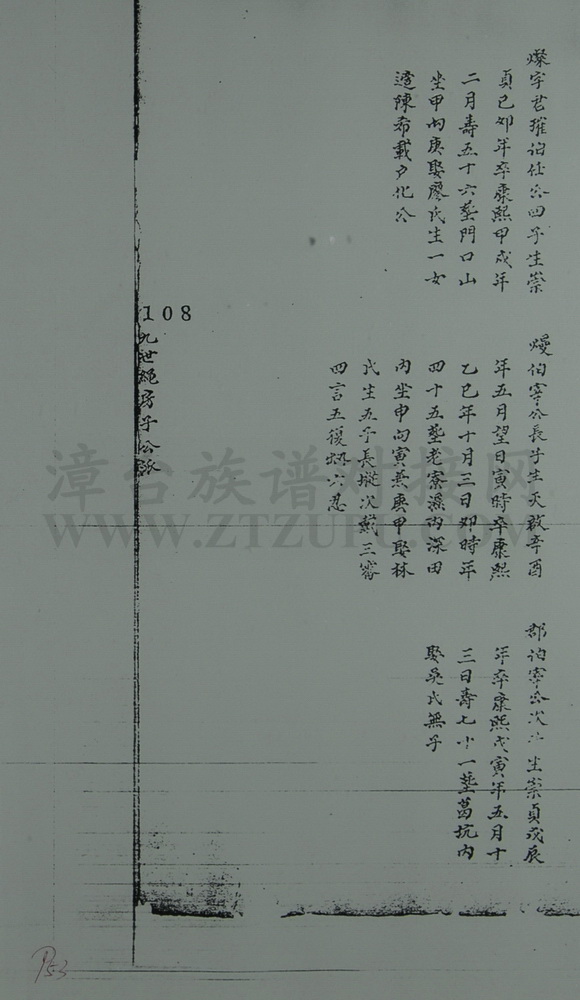 燦字君璀伯任公四子生崇
貞己卯年卒康熙甲戌年
二月壽五十六塟門口山
坐甲向庚娶廖氏生一女
適陳希載戸化公
熳伯寧公長子生天啟辛酉
年五月望日寅時卒康熙
乙巳年十月三日卯時年
四十五塟老寮溪內深田
內坐申向寅兼庚甲娶林
氏生五子長 次 三審
四言五復 六忍
郡伯寧公次 生崇貞戊辰
年卒康熙戊寅年五月十
三日壽七十一塟葛坑內
娶吳氏無子
108
九世繩房子公派
漳台族谱对接网
WWW.ZTZUPU.COM
P53